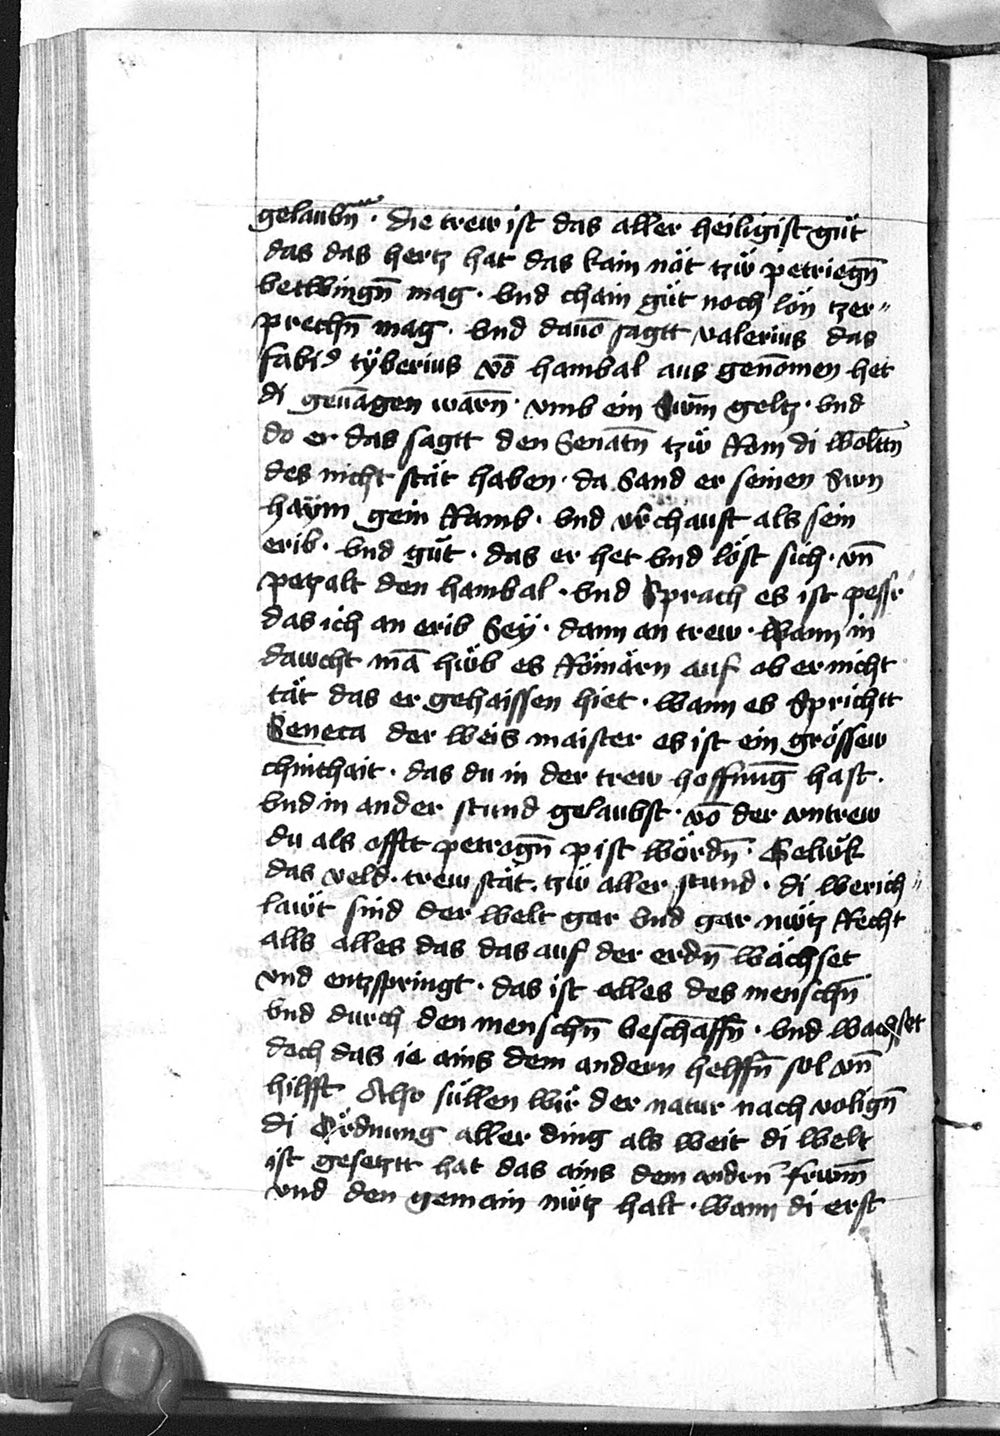 gelaubn̄ · die trew ist das aller heiligist gůt
das das hertz hat das kain nöt tzẅ petriegn̄
betwingn̄ mag · vnd chain gůt noch lön tzer-
prechn̄ mag · vnd dauō sagtt valerius das
fabi9 tÿberius vō hambal aus genōmen het
di geuāagen warn̄ · vmb ein Swm̄ geltz · vnd
do er das sagtt den Senatn̄ tzẅ Rom di woltn̄
des nicht stät haben · da Sand er seinen Swn
haÿm gein Ramb · vnd vr̄chauft als sein
erib · vnd gůt · das er het vnd löst sich · vn̄
petzalt den hambal · vnd Sprach es ist pesser
das ich an erib Seÿ · dann an trew · Wann in
dawcht mā hẅb es Römärn auf ob er nicht
tät das er gehaissen hiet · wann es Sprichtt
Seneca der weis maister es ist ein grössew
chinthait · das du in der trew hoffnūg hast ·
vnd in ander stund gelaubst · vō der vntrew
du als offtt petrogn̄ pist wördn̄ · Gelẅk
das veld · trew stät · tzẅ aller stund · di werich-
lawt sind der welt gar vnd gar nẅtz Recht
alls alles das das auf der erdn̄ wächset
vnd entzspringt · das ist alles des menschn̄
vnd durch den menschn̄ beschaffn̄ · vnd wachset
doch das ie ains dem andern helffn̄ sol vn̄
hilfft Also süllen wir der natur nach volign̄
di Ördnung aller ding als weit di welt
ist gesetztt hat das ains dem andrn̄ frwm̄
vnd den gemain nẅtz halt · wann di erst